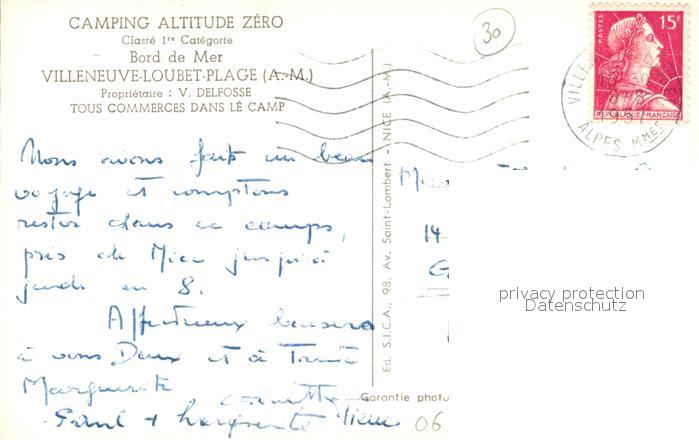 CAMPING ALTITUDE ZÉRO
Classé 1re Catégorie
Bord de Mer
VILLENEUVE-LOUBET-PLAGE (A.-M.)
Propriétaire : V. DELFOSSE
TOUS COMMERCES DANS LE CAMP
30
POSTES
15F
REPUBLIQUE FRANÇAISE
ALPES MMES
Nous avons fait un beau
voyage et comptons
rester dans ce camps,
près de Nice jusqu'à
jeudi en 8.
Affectueux baisers
à vous Deux et à Tante
Marguerite
Paul + Marguerite
Ed. S.I.C.A., 98, Av. Saint-Lambert - NICE (A.-M.)
14
privacy protection
Datenschutz
Garantie photo
06